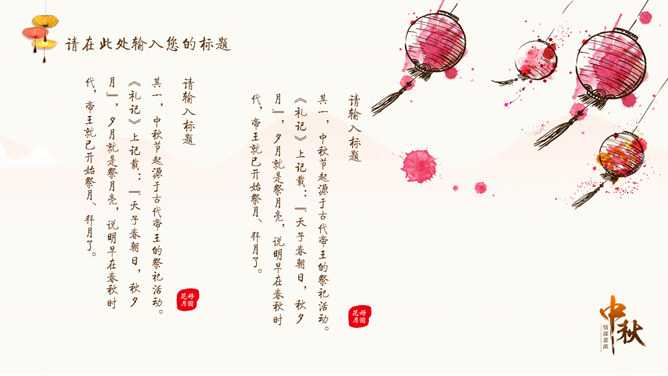 请在此处输入您的标题
请输入标题
其一，中秋节起源于古代帝王的祭祀活动。
《礼记》上记载：“天子春朝日，秋夕
月”，夕月就是祭月亮，说明早在春秋时
代，帝王就已开始祭月、拜月了。
花好
月圆
请输入标题
其一，中秋节起源于古代帝王的祭祀活动。
《礼记》上记载：“天子春朝日，秋夕
月”，夕月就是祭月亮，说明早在春秋时
代，帝王就已开始祭月、拜月了。
花好
月圆
中秋